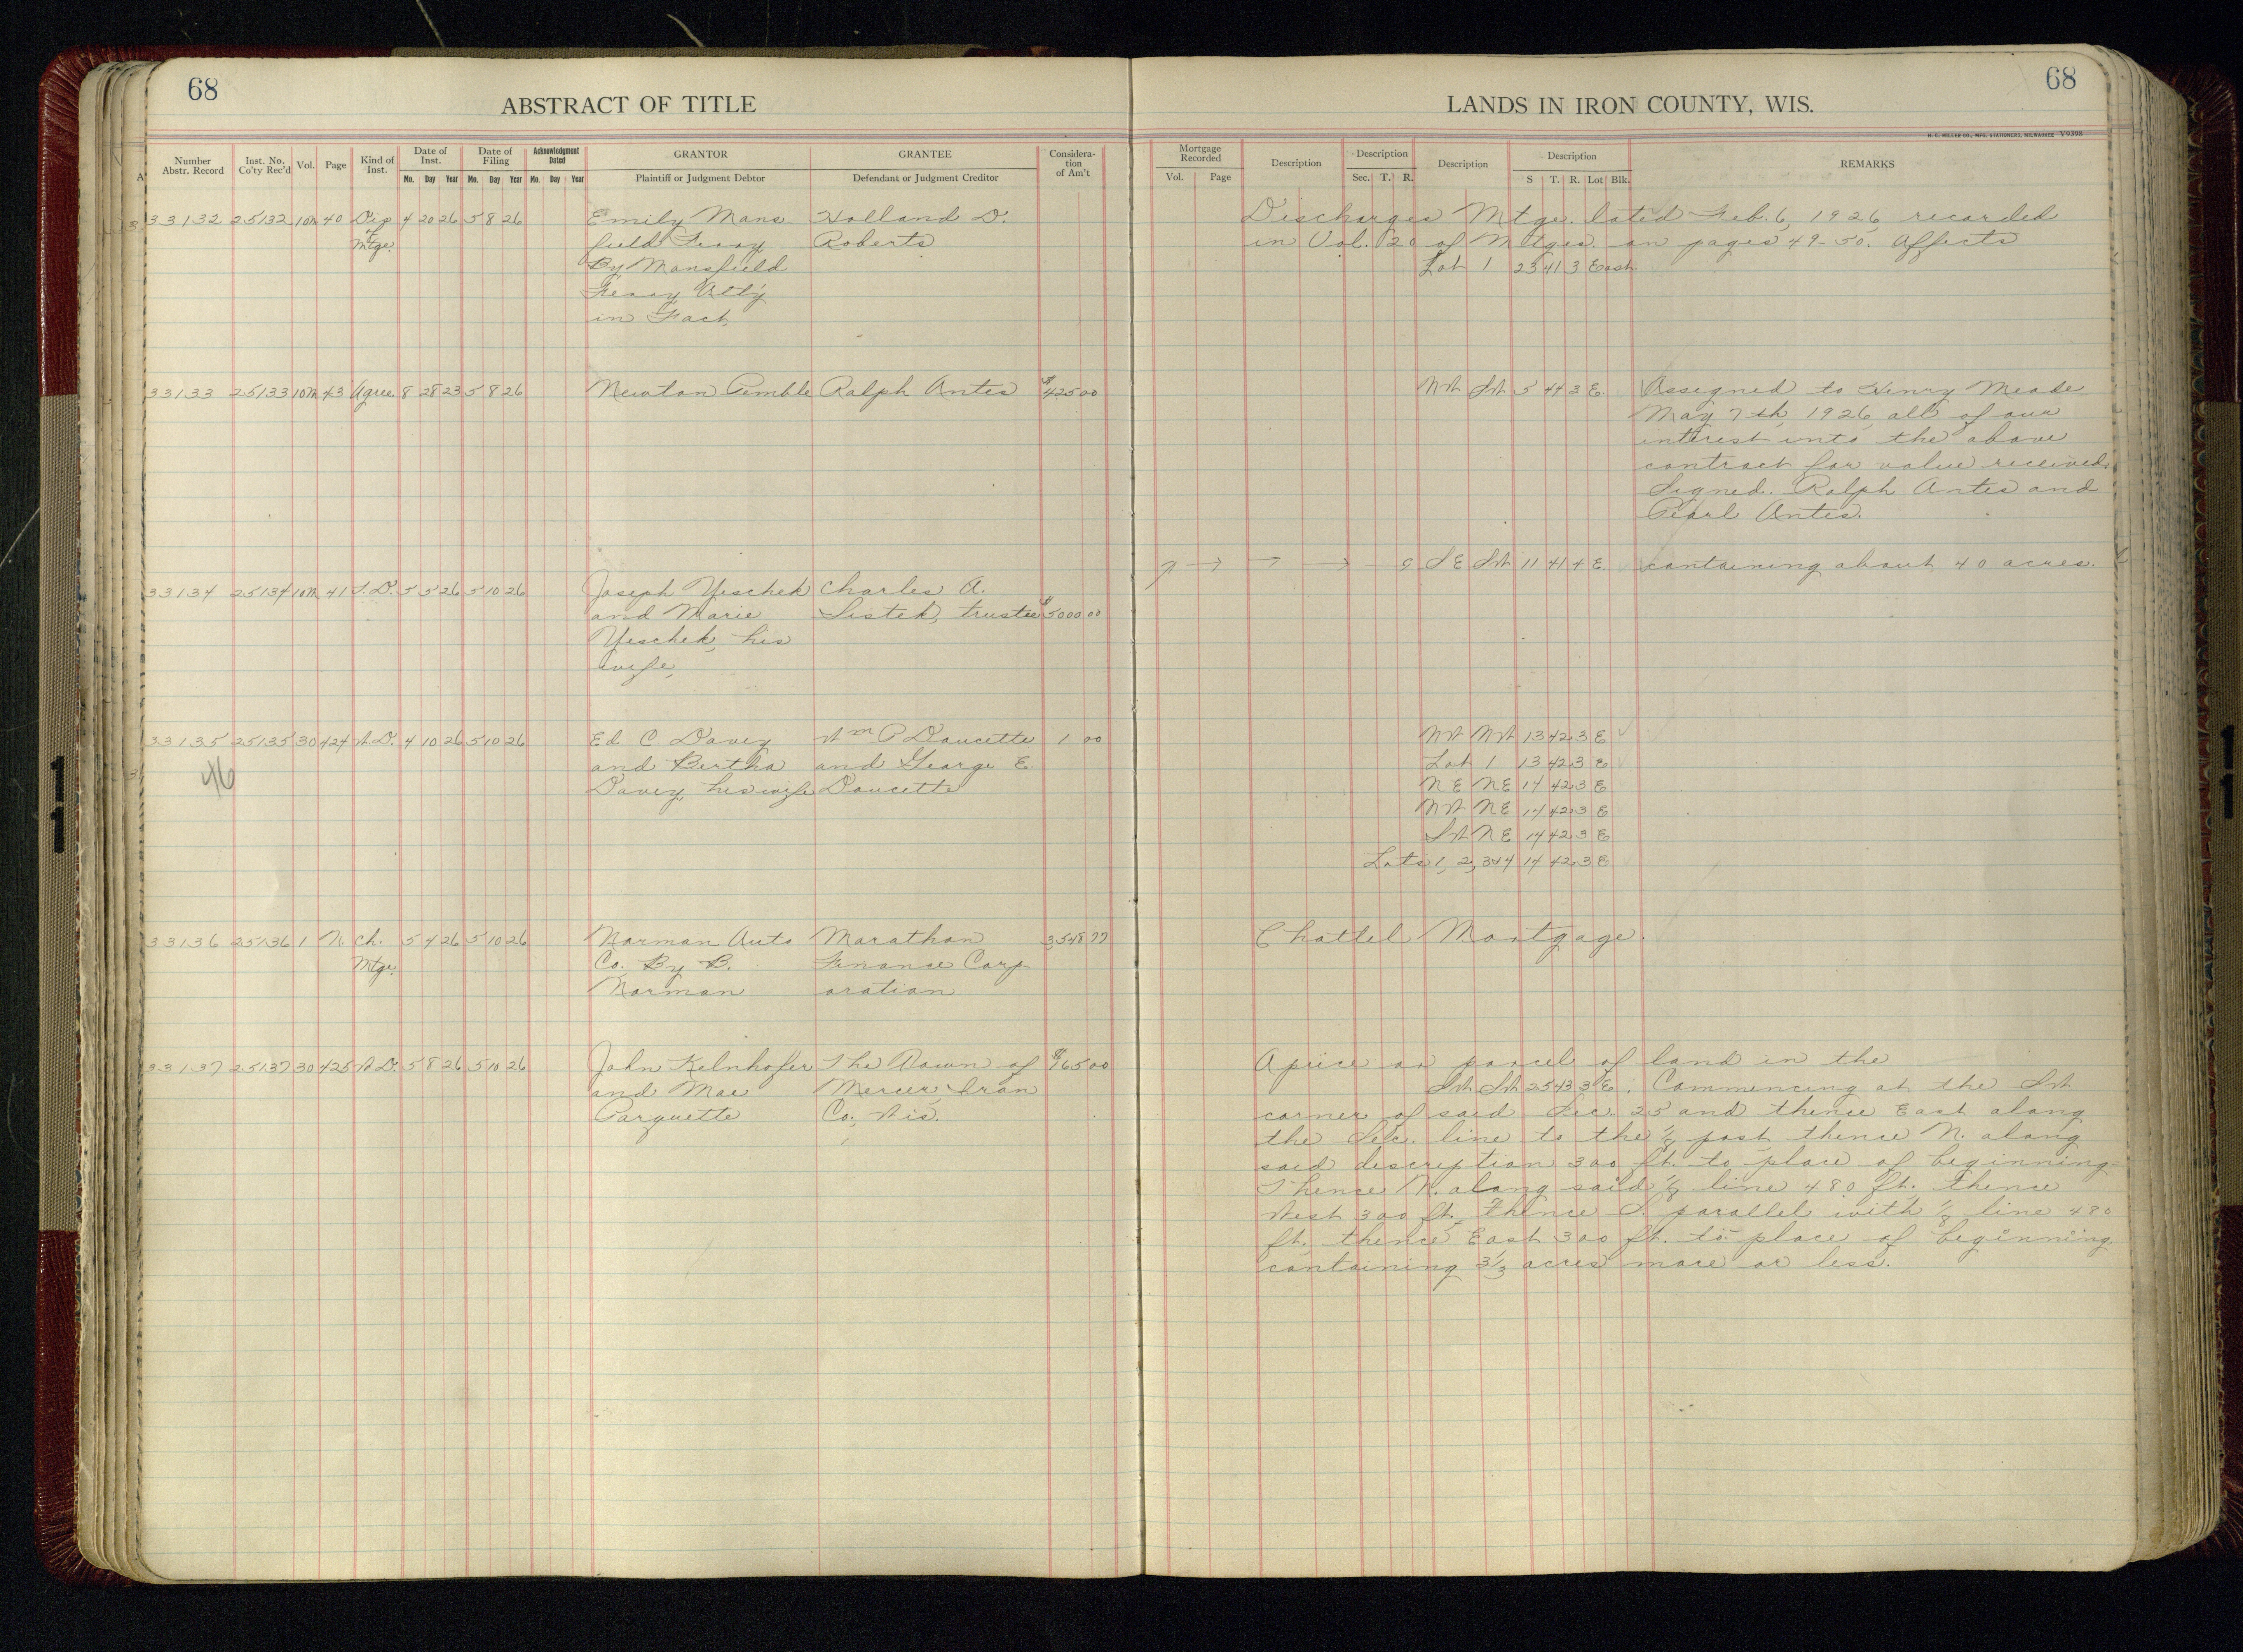 68
ABSTRACT OF TITLE
LANDS IN IRON COUNTY, WIS.
68
H. C. MILLER CO., MFG. STATIONERS, MILWAUKEE V9398
Number Abstr. Record | Inst. No. Co'ty Rec'd | Vol. | Page | Kind of Inst. | Date of Inst. Mo. Day Year | Date of Filing Mo. Day Year | Acknowledgment Dated Mo. Day Year | GRANTOR Plaintiff or Judgment Debtor | GRANTEE Defendant or Judgment Creditor | Consideration of Am't
Mortgage Recorded Vol. Page | Description | Description Sec. T. R. | Description | Description S T. R. Lot Blk. | REMARKS
33132 25132 10M 40 Dis 4 20 26 5 8 26 Emily Mans- Holland D. Discharges Mtge. dated Feb. 6, 1926 recorded
of Mtge. field Feray Roberts in Vol. 20 of Mtges. on pages 49-50. Affects
By Mansfield Lot 1 23 41 3 East
Feray Att'y
in Fact
33133 25133 10M 43 Agree. 8 28 23 5 8 26 Newton Pemble Ralph Antes $425 00 NW SW 5 44 3 E. Assigned to Henry Meade
May 7th, 1926, all of our
interest into the above
contract for value received.
Signed. Ralph Antes and
Pearl Antes.
SE SW 11 41 4 E. containing about 40 acres.
33134 25134 10M 41 T.D. 5 5 26 5 10 26 Joseph Yeschek Charles A.
and Marie Listek, trustee $5000 00
Yeschek, his
wife,
33135 25135 30 424 W.D. 4 10 26 5 10 26 Ed C Davey Wm P Doucette 1 00 NW NW 13 42 3 E
46 and Bertha and George E. Lot 1 13 42 3 E
Davey, his wife Doucette NE NE 14 42 3 E
NW NE 14 42 3 E
SW NE 14 42 3 E
Lots 1, 2, 3 & 4 14 42 3 E
33136 25136 1 N. Ch. 5 4 26 5 10 26 Norman Auto Marathon 3,548 77 Chattel Mortgage.
Mtge. Co. By B. Finance Corp-
Norman oration
33137 25137 30 425 W.D. 5 8 26 5 10 26 John Kelnhofer The Town of $165 00 A piece or parcel of land in the
and Mae Mercer, Iron SW SW 25 43 3 E. Commencing at the SW
Parquette Co., Wis. corner of said Sec. 25 and thence East along
the Sec. line to the 1/8 post thence N. along
said description 300 ft. to place of beginning-
Thence N. along said 1/8 line 480 ft. thence
West 300 ft., thence S. parallel with 1/8 line 480
ft. thence East 300 ft. to place of beginning
containing 3 1/3 acres more or less.